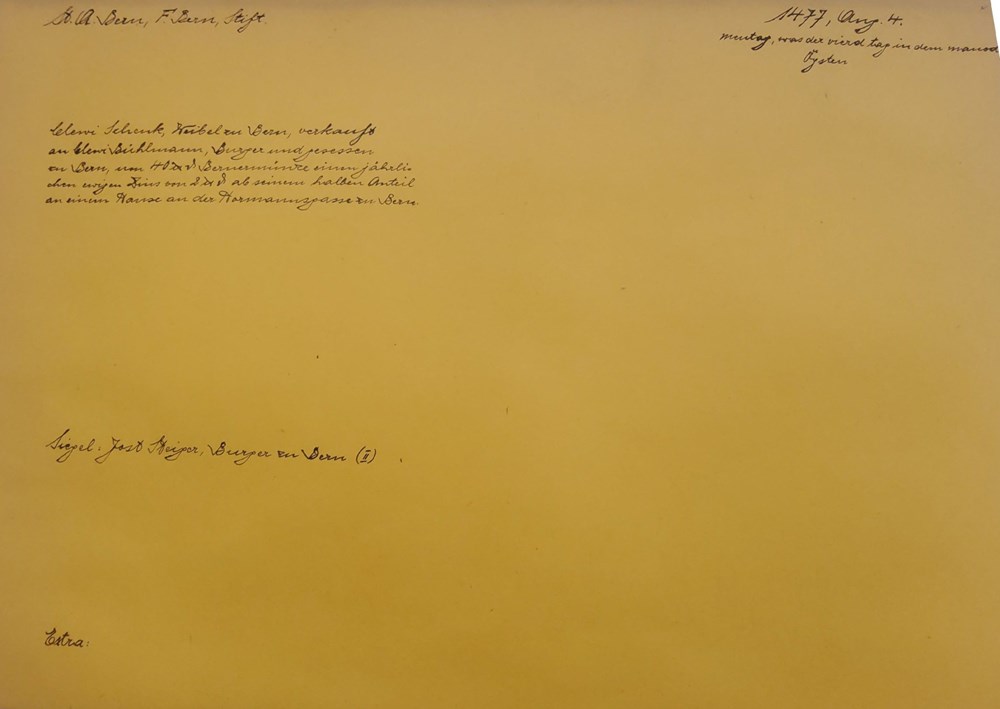 St. A. Bern, F. Bern, Stift.
1477, Aug. 4.
mentag, was der vierd tag in dem manod
Ögsten
Clewi Schenk, Weibel zu Bern, verkauft
an Clewi Büchlmann, Burger und gesessen
zu Bern, um 40 ℔ ₰ Bernermünze einen jährli-
chen ewigen Zins von 2 ℔ ₰ ab seinem halben Anteil
an einem Hause an der Hormannsgasse zu Bern.
Siegel: Jost Steiger, Burger zu Bern (II)
Extra: